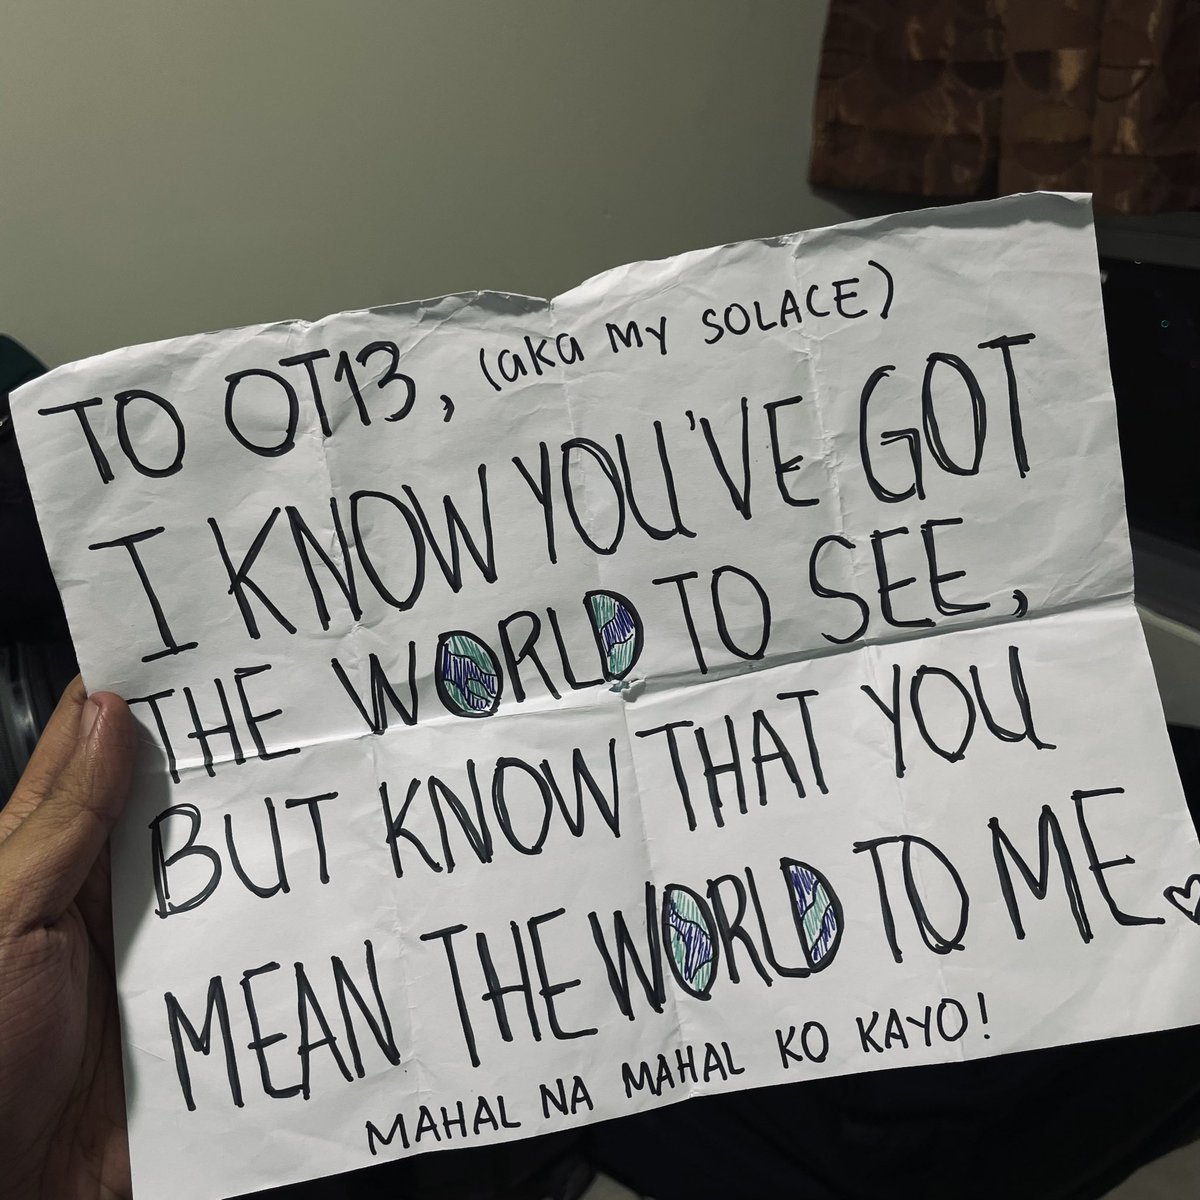 TO OT13, (aka MY SOLACE)
I KNOW YOU'VE GOT
THE WORLD TO SEE,
BUT KNOW THAT YOU
MEAN THE WORLD TO ME ♡
MAHAL NA MAHAL KO KAYO!